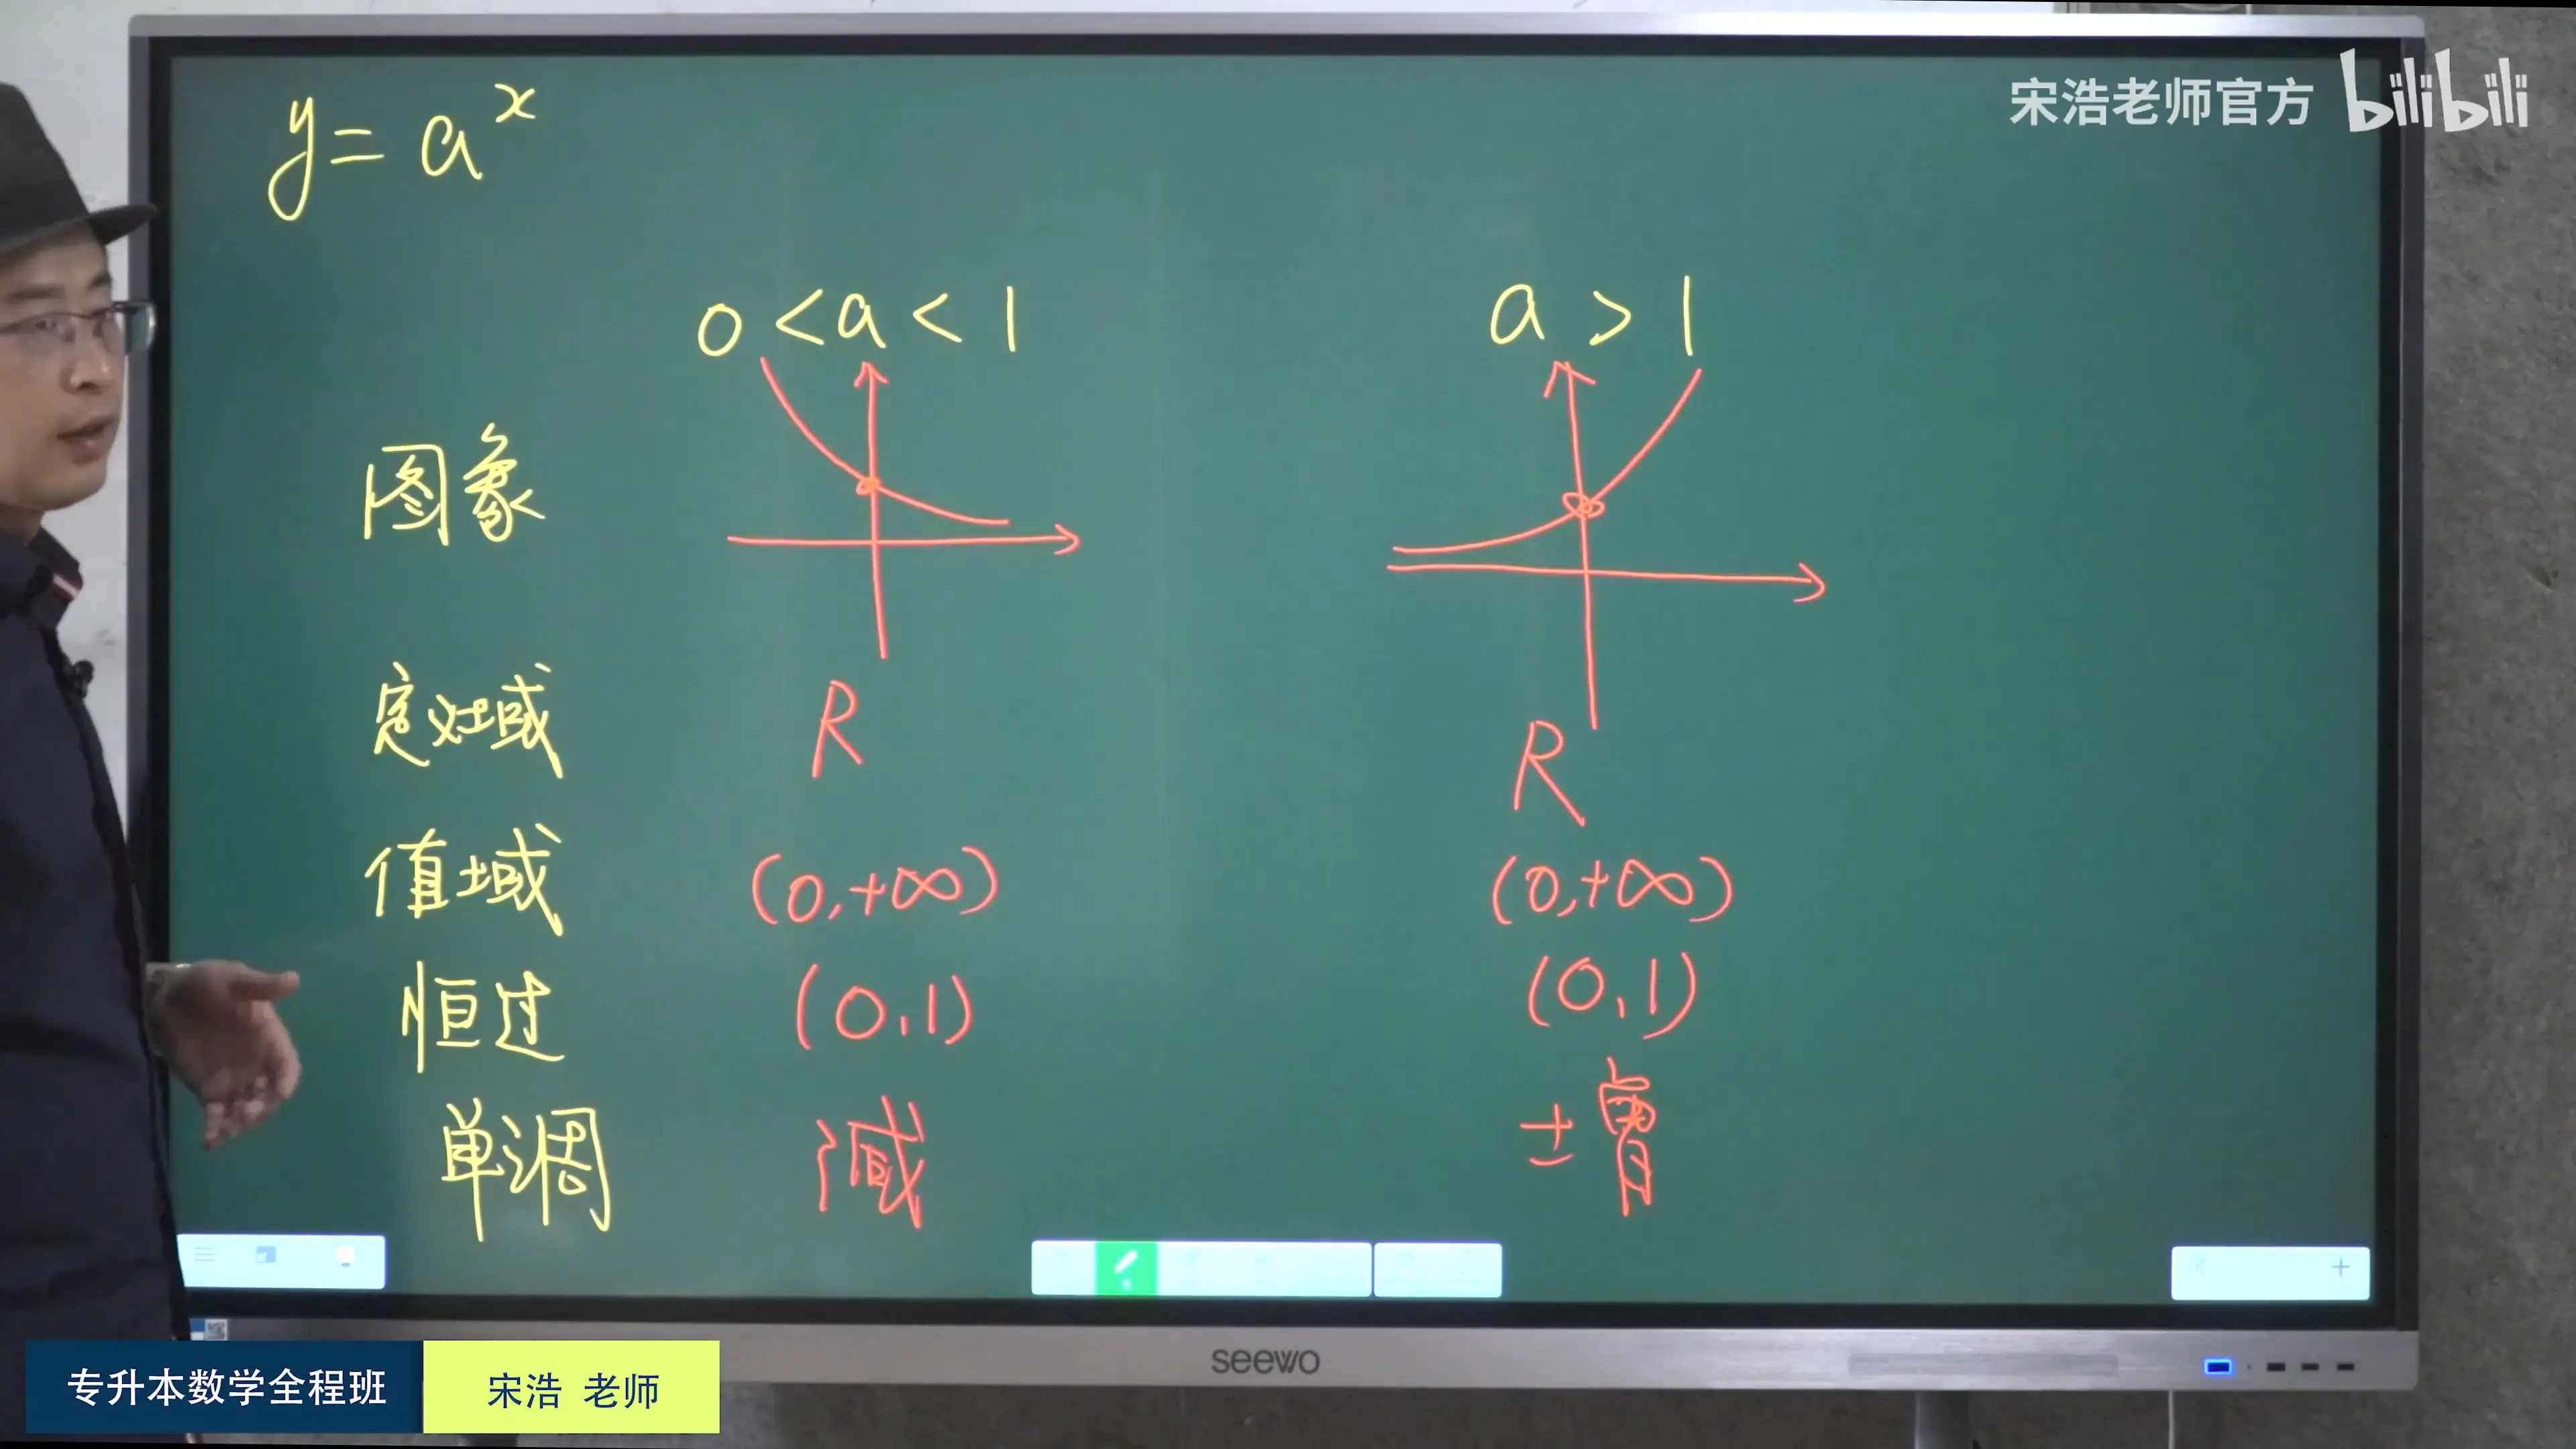 宋浩老师官方 bilibili
y = a^x
0 < a < 1
a > 1
图象
定义域 R R
值域 (0,+∞) (0,+∞)
恒过 (0,1) (0,1)
单调 减 增
seewo
专升本数学全程班 宋浩 老师